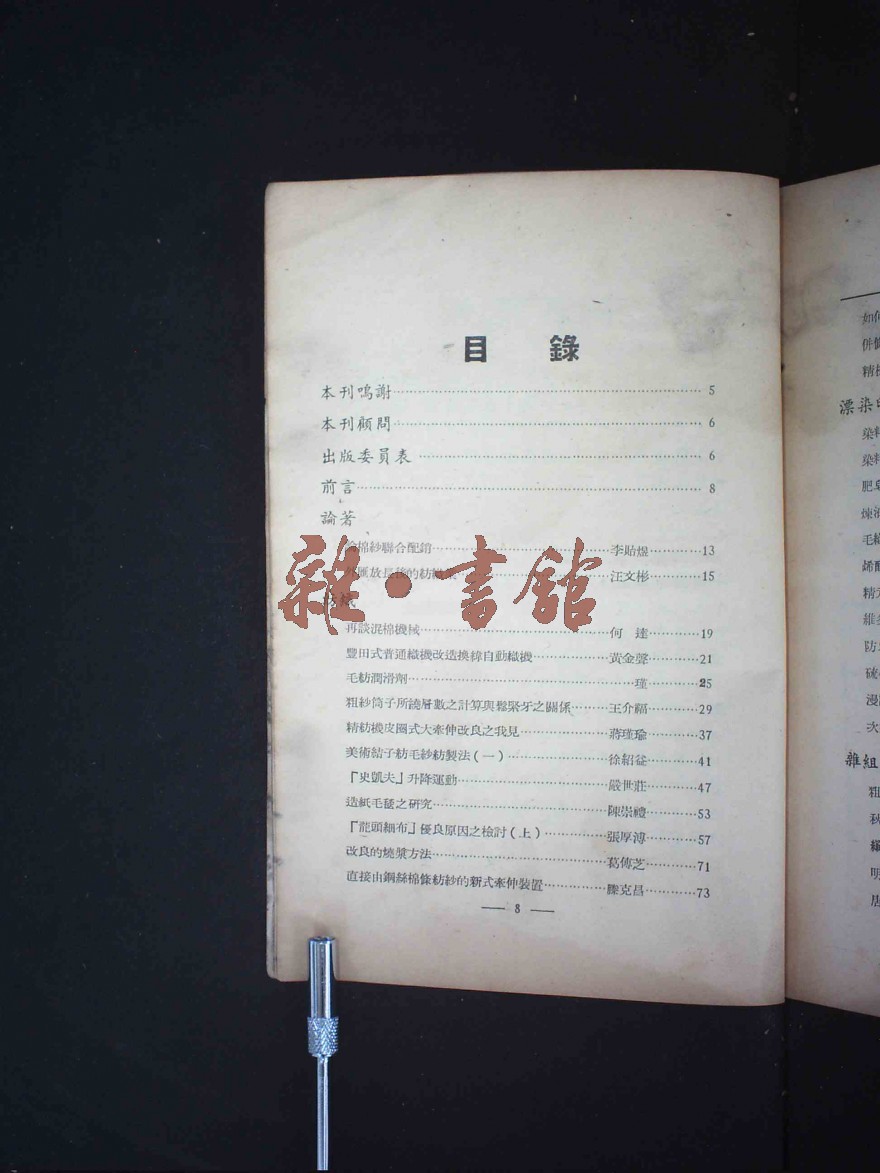 目錄
本刊鳴謝 5
本刊顧問 6
出版委員表 6
前言 8
論著
棉紗聯合配銷 李貽煜 13
匯放長後的紡織業 汪文彬 15
雜·書館
再談混棉機械 何達 19
豐田式普通織機改造換緯自動織機 黃金聲 21
毛紡潤滑劑 瑾 25
粗紗筒子所繞層數之計算與鬆緊牙之關係 王介福 29
精紡機皮圈式大牽伸改良之我見 蔣瑾瑜 37
美術結子紡毛紗紡製法(一) 徐紹益 41
「史凱夫」升降運動 嚴世莊 47
造紙毛毯之研究 陳崇禮 53
「龍頭細布」優良原因之檢討(上) 張厚溥 57
改良的燒漿方法 葛傳芝 71
直接由鋼絲棉條紡紗的新式牽伸裝置 滕克昌 73
— 8 —
精
漂染
染
染
肥
毛
烯
精
維
防
硫
漫
次
雜組
粗
明